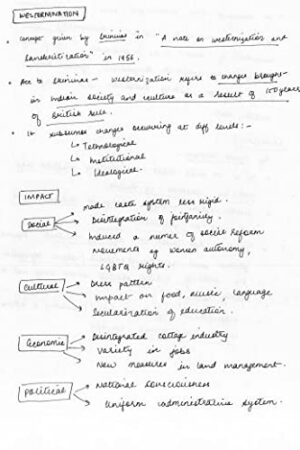 WESTERNIZATION
• concept given by Srinivas in "A note on westernization and
Sanskritization" in 1956.
• Acc to Srinivas - westernization refers to changes brought
in Indian society and culture as a result of 150 years
of British rule.
• It subsumes changes occurring at diff levels:-
↳ Technological
↳ Institutional
↳ Ideological.
IMPACT
Social
made caste system less rigid.
Disintegration of
Induced a number of social reform
movements eg women autonomy,
LGBTQ rights.
Cultural
Dress pattern
Impact on food, music, language
Secularization of education.
Economic
Disintegrated cottage industry
Variety in jobs
New measures in land management.
Political
National consciousness
Uniform administrative system.